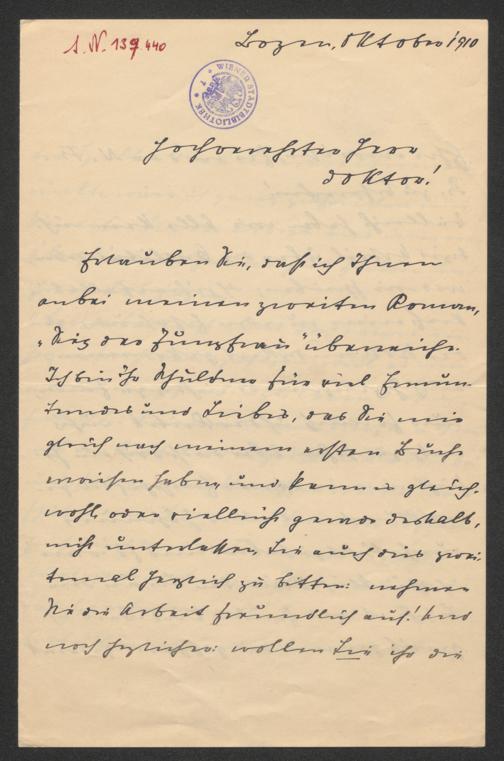 J. N. 139.440
Bozen, Oktober 1910
* WIENER STADTBIBLIOTHEK *
Hochverehrter Herr
Doktor!
Erlauben Sie, daß ich Ihnen
anbei meinen zweiten Roman,
„Sieg der Jungfrau“ überreiche.
Ich bin Ihr Schuldner für viel Ermun-
terndes und Liebes, das Sie mir
gleich nach meinem ersten Buche
erwiesen haben, und kann es gleich-
wohl, oder vielleicht gerade deshalb,
nicht unterlassen, Sie auch dies zwei-
temal herzlich zu bitten: nehmen
Sie die Arbeit freundlich auf! Und
noch herzlicher: wollen Sie ihr die